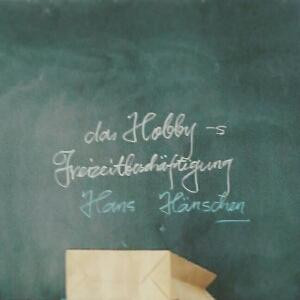 das Hobby -s
Freizeitbeschäftigung
Hans Hänschen